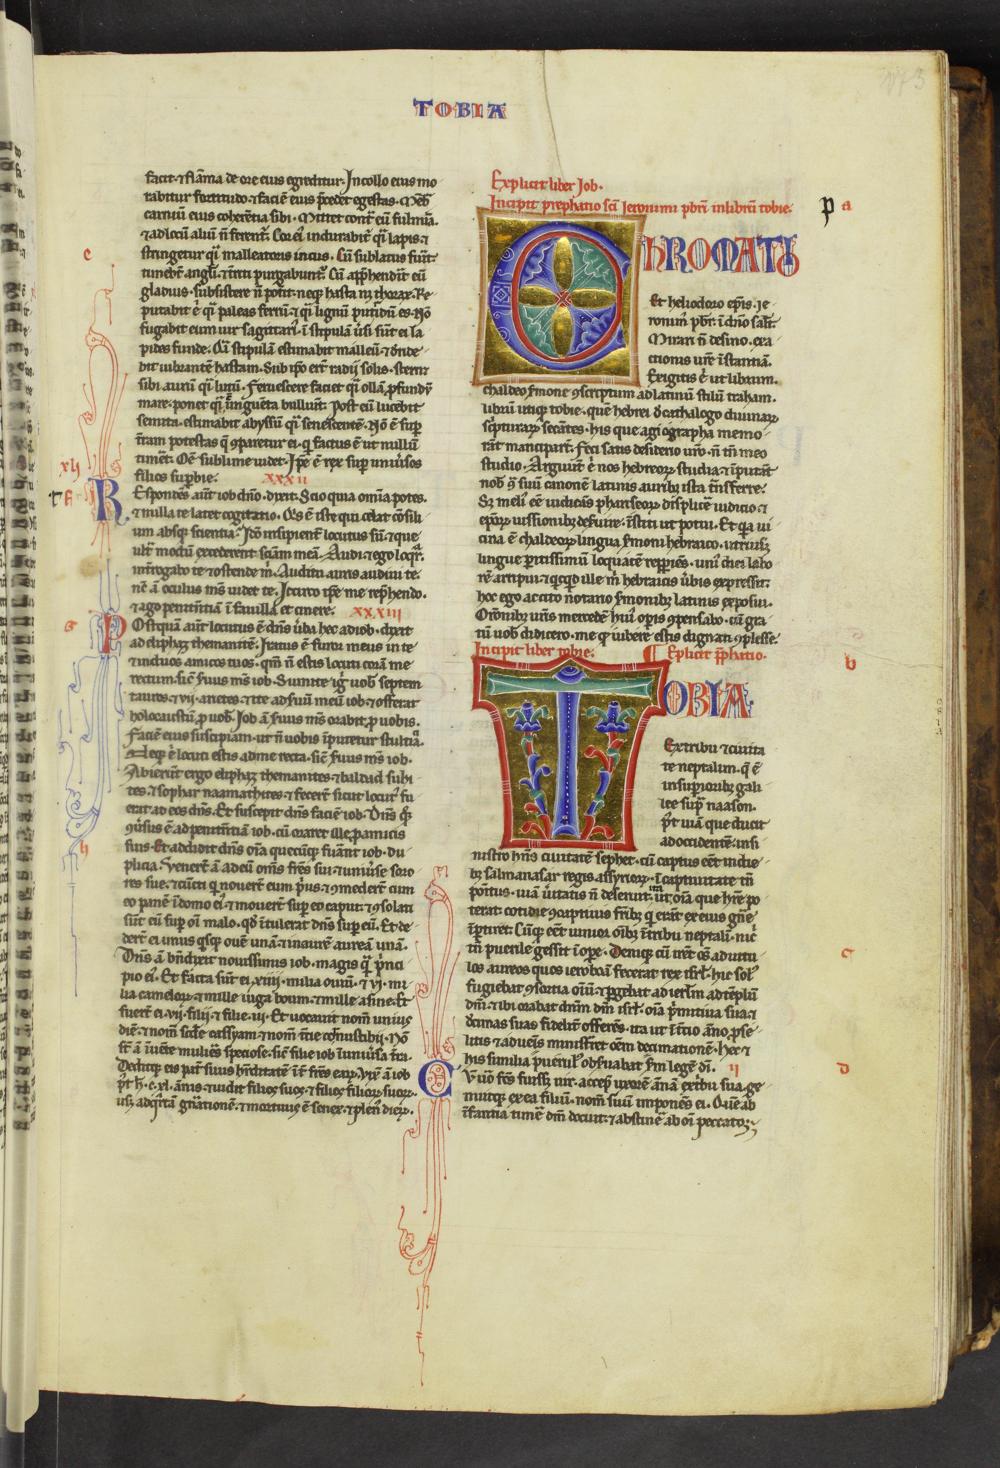 173
TOBIA
facit ⁊ flāma de ore eius egreditur. In collo eius mo
rabitur fortitudo ⁊ faciē eius p̄cedet egestas. Mēb̄
carniū eius coherētia sibi. Mittet cont̄ eū fulmīa.
⁊ ad locū aliū n̄ ferent̄. Cor ei indurabit̄ q̄i lapis ⁊
stringetur q̄i malleatoris incus. Cū sublatus fuīt
timebt̄ angl̄i ⁊ t̄riti purgabunt̄. Cū app̄henderit eū
gladius. subsistere n̄ potit. neq hasta nq thorax. Re
putabit ē q̄i paleas ferrū ⁊ q̄i lignū putidū es. Nō
fugabit eum uir sagittari. ī stipulā ūsi sūt ei la
pides funde. Q̄i stipulā estimabit malleū ⁊ dēride
bit uibrantē hastam. Sub ip̄o erūt radij solis. sternt
sibi aurū q̄i lutū. Feruescere faciet q̄i ollā p̄fundū
mare. ponet q̄i ungueta bulliunt. Post eū lucebit
semita. estimabit abyssū q̄i senescentē. Nō ē sup
t̄ram potestas q ꝯparetur ei. q factus ē ut nullū
timēt. Oē sublime uidet. Ip̄e ē rex sup uniūsos
filios supbie. xxxii
Respondēs aūt iob dn̄o. dixit. Scio quia omīa potes.
⁊ nulla te latet cogitatio. Q̄s ē iste qui celat cōsili
um absq scientia. Iō insipient̄ locutus sū. ⁊ que
ult̄ modū excederent sciam meā. Audi ⁊ ego loqr.
int̄rogabo te ⁊ ostende m̄. Auditu auris audiui te.
nc̄ ā oculus ms̄ uidet te. Iccirco ip̄e me rep̄hendo.
⁊ ago penitētiā ī fauilla et cinere. xxxiii
Postquā aūt locutus ē dn̄s ūba hec ad iob. dixit
ad eliphaz themanitē. Iratus ē furor meus in te
⁊ in duos amicos tuos. qm̄ n̄ estis locuti corā me
rectum. sic̄ suus ms̄ iob. Sumite iḡ uob septem
tauros ⁊ vii. arietes. ⁊ ite ad suū meū iob ⁊ offerat
holocaustū p uob. Iob ā suus ms̄ orabit p uobis.
Faciē eius suscipiam. ut n̄ uobis īputetur stultiā.
Neq ē locuti estis ad me recta. sic̄ suus ms̄ iob.
Abierūt ergo eliphaz themanites ⁊ baldad suhi
tes. ⁊ sophar naamathites. ⁊ fecert̄ sicut locut̄ fu
erat ad eos dn̄s. Et suscepit dn̄s faciē iob. Dn̄s q̄
ꝯūsus ē ad penitētiā iob. cū oraret ille p amicis
suis. Et addidit dn̄s oīa quecūq fuānt iob. du
plicia. Venert̄ ā ad eū om̄s frēs sui. ⁊ uniūse soro
res sue. ⁊ cūcti q nouerūt eum p̄us. ⁊ ꝯmedert̄ cum
eo panē ī domo ei. ⁊ mouert̄ sup eo caput. ⁊ ꝯsolati
sūt eū sup oī malo. qd̄ ītulerat dn̄s sup eū. Et de
dert̄ ei unus qsq ouē unā ⁊ inaurē aureā unā.
Dn̄s ā bn̄dixit nouissimis iob. magis q̄ p̄nci
pio ei. Et facta sūt ei .xiiii. milia ouiū. ⁊ vi. mi
lia camelor ⁊ mille iuga boum. ⁊ mille asine. Et
fuert̄ ei .vii. filii ⁊ filie .iii. Et uocauit nom̄ unius
diē. ⁊ nom̄ sc̄de cassyam ⁊ nom̄ t̄cie cornustibij. Nō
st̄ ā īuēte mulieres speciose. sic̄ filie iob ī uniūsa t̄ra.
Deditq eis pat̄ suus hr̄editatē īt̄ frēs ear. Vix̄ ā iob
p̄t h̄. cxl. ānis. ⁊ uidit filios suos ⁊ filios filior suor.
usq ad q̄rtā gn̄ationē. ⁊ mortuus ē senex. ⁊ plen̄ dier.
Explicit liber Job.
Incipit prephatio sc̄i Jeronimi pbri in librū tobie.
CHROMATIO
Et heliodoro ep̄is. ie
ronim̄ pbr. ī dn̄o sal̄t.
Mirari n̄ desino. exa
ctionis ur̄e īstantiā.
Exigitis ē ut librum.
chaldeo s̄mone ꝯscriptum ad latinū stilū traham.
librū utiq tobie. quē hebrei d̄ cathalogo diuinar
sc̄pturar secātes. his que agiographa memo
rāt manciparūt. Feci satis desiderio ur̄o. n̄ tn̄ meo
studio. Arguūt ē nos hebreor studia. ⁊ īputāt
nob ꝯ suū canonē latinis aurib ista t̄nsferre.
Sz meli ēē iudicās phariseor displicē iudicio ⁊
ep̄or iussionib deseruire. īstiti ut potui. Et qa ui
cina ē chaldeor lingua s̄moni hebraico. utriusq
lingue pitissimū loquacē repperiēs. uni diei labo
rē arripui. ⁊ qcqd ille m̄ hebraicis ūbis expressit.
hoc ego accito notario s̄monib latinis exposui.
Orōnib ur̄is mercedē hui opis ꝯpensabo. cū gra
tū uob didicero. me q iubere estis dignati ꝯplesse.
Incipit liber tobie. Explicit p̄phatio.
TOBIA
Ex tribu ⁊ ciuita
te neptalim. q̄ ē
in supiorib gali
lee sup naason.
p̄t uiā que ducit
ad occidentē. in si
nistro hn̄s ciuitatē sephet. cū captus eēt in die
b salmanasar regis assyrior. ī captiuitate tn̄
positus. uiā ūitatis n̄ deseruit. ita ut oīa que hr̄e po
terat. cotidie ꝯcaptiuis frīb q erāt ex eius gn̄e
īptiret. Cūq eēt iunior oīb ī tribu neptali. nic̄
tn̄ puerile gessit ī ope. Deniq cū irēt oēs ad uitu
los aureos quos ieroboā fecerat rex isrl̄. hic sol̄
fugiebat ꝯsortia oīū. ⁊ pgebat ad ierl̄m ad tēplū
dn̄i. ⁊ ibi orabat dn̄m dm̄ isrl̄. oīa p̄mitiua sua ⁊
dēcimas suas fidelit̄ offerēs. ita ut ī t̄cio āno. pse
litis ⁊ aduēis ministret oēm decimationē. Hec ⁊
his similia pueril̄ obsuabat s̄m legē dī. ii
Cū uo fcs̄ fuiss uir. accep uxorē ānā ex tribu sua. ge
nuitq ex ea filiū. nom̄ suū imponēs ei. Quē ab
īfantia timē dm̄ docuit. ⁊ abstinē ab oī peccato.
c
xlij
R
G
h
P
a
b
c
d